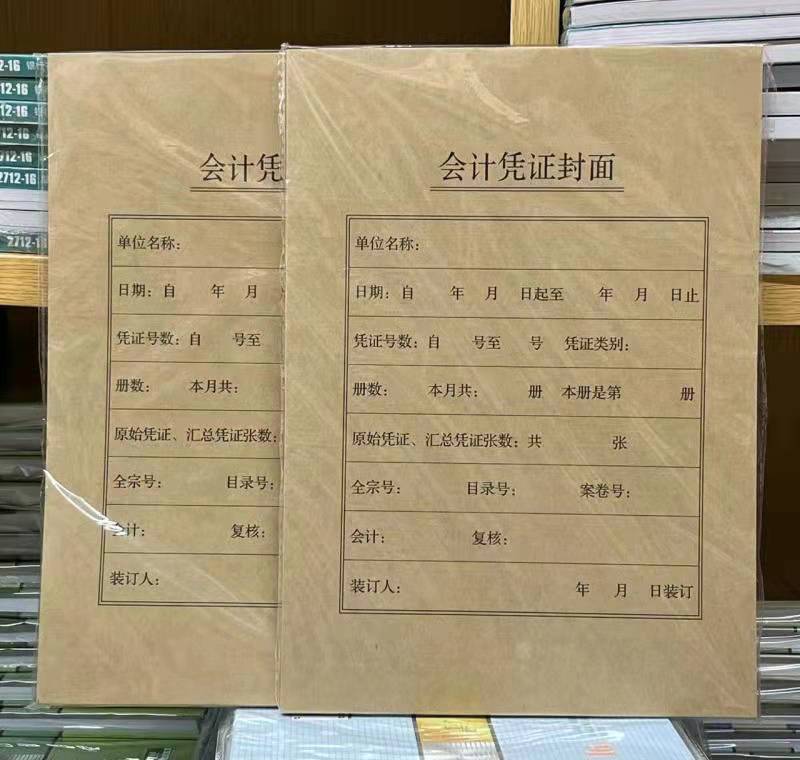 12-16
12-16
12-16
12-16
712-16
2712-16
2712-16
会计凭
单位名称：
日期：自 年 月
凭证号数：自 号至
册数： 本月共：
原始凭证、汇总凭证张数：
全宗号： 目录号：
会计： 复核：
装订人：
会计凭证封面
单位名称：
日期：自 年 月 日起至 年 月 日止
凭证号数：自 号至 号 凭证类别：
册数： 本月共： 册 本册是第 册
原始凭证、汇总凭证张数：共 张
全宗号： 目录号： 案卷号：
会计： 复核：
装订人： 年 月 日装订